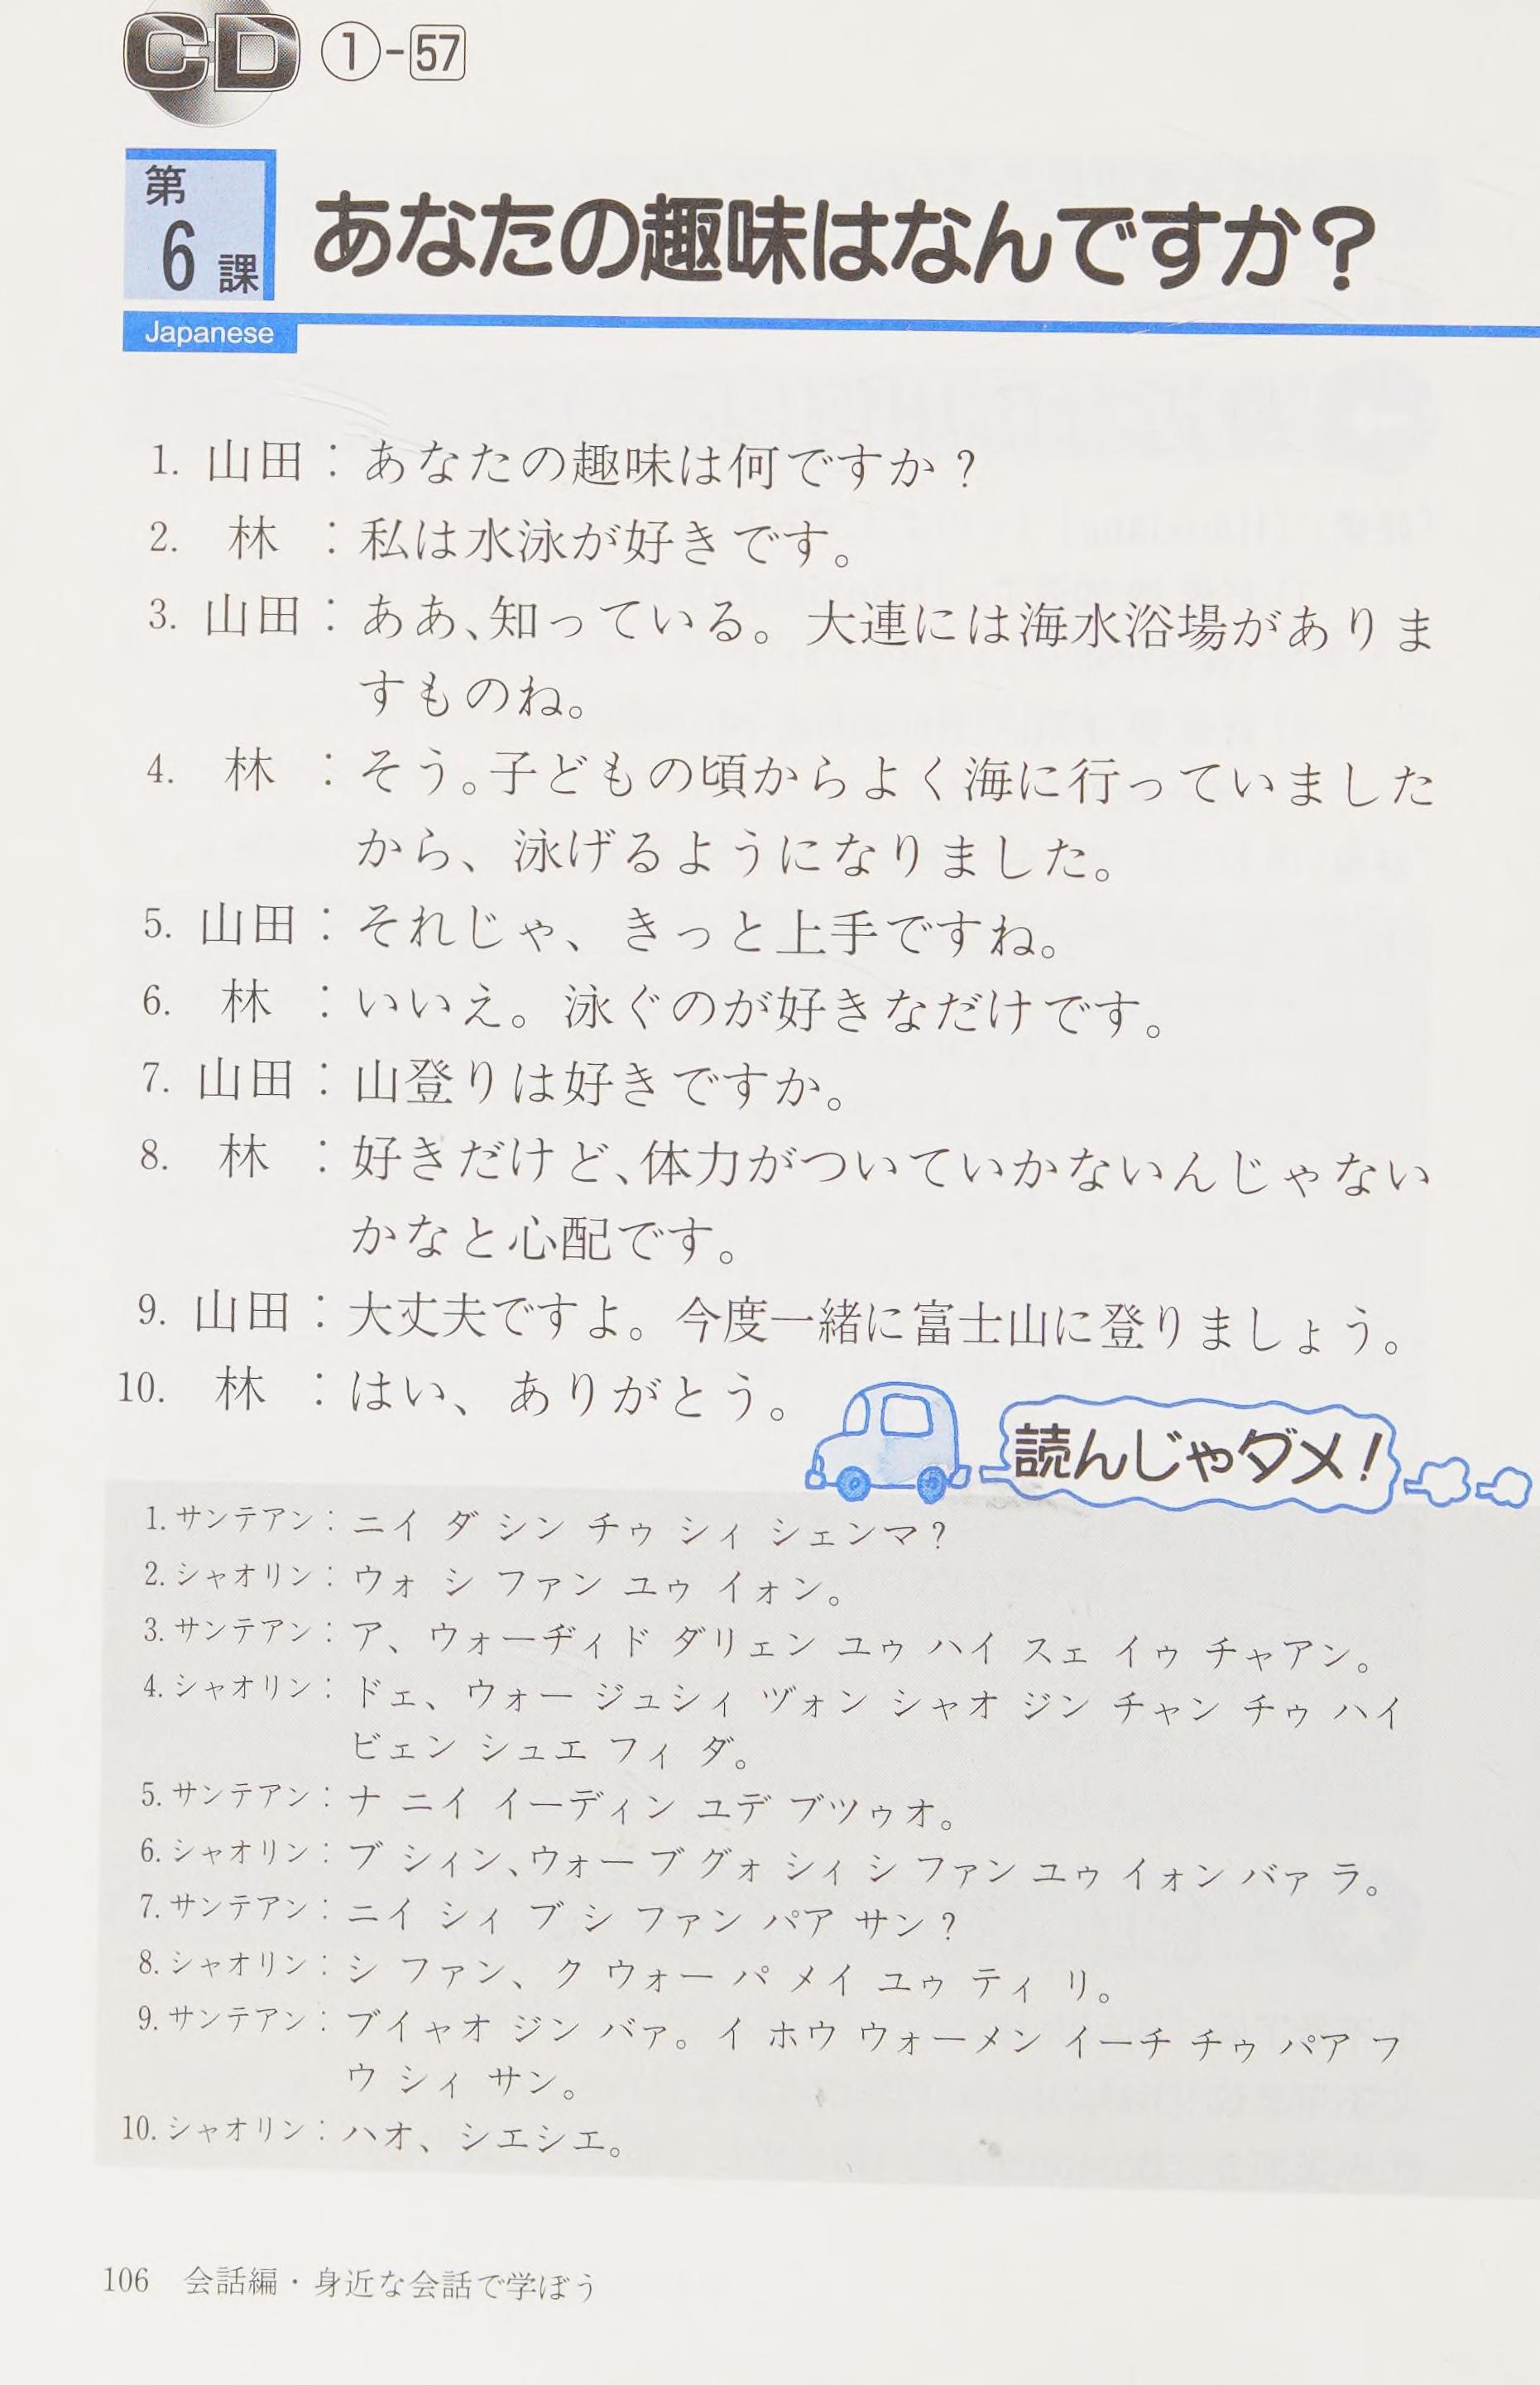 CD ①-57
第6課 あなたの趣味はなんですか?
Japanese
1. 山田：あなたの趣味は何ですか？
2. 林：私は水泳が好きです。
3. 山田：ああ、知っている。大連には海水浴場がありま
すものね。
4. 林：そう。子どもの頃からよく海に行っていました
から、泳げるようになりました。
5. 山田：それじゃ、きっと上手ですね。
6. 林：いいえ。泳ぐのが好きなだけです。
7. 山田：山登りは好きですか。
8. 林：好きだけど、体力がついていかないんじゃない
かなと心配です。
9. 山田：大丈夫ですよ。今度一緒に富士山に登りましょう。
10. 林：はい、ありがとう。
読んじゃダメ!
1. サンテアン：ニイ ダ シン チゥ シィ シェンマ？
2. シャオリン：ウォ シ ファン ユゥ イォン。
3. サンテアン：ア、ウォーヂィド ダリェン ユゥ ハイ スェ イゥ チャアン。
4. シャオリン：ドェ、ウォー ジュシィ ヅォン シャオ ジン チャン チゥ ハイ
ビェン シュエ フィ ダ。
5. サンテアン：ナ ニイ イーディン ユデ ブツゥオ。
6. シャオリン：ブ シィン、ウォー ブ グォ シィ シ ファン ユゥ イォン バァ ラ。
7. サンテアン：ニイ シィ ブ シ ファン パア サン？
8. シャオリン：シ ファン、ク ウォー パ メイ ユゥ ティ リ。
9. サンテアン：ブイャオ ジン バァ。イ ホウ ウォーメン イーチ チゥ パア フ
ウ シィ サン。
10. シャオリン：ハオ、シエシエ。
106 会話編・身近な会話で学ぼう